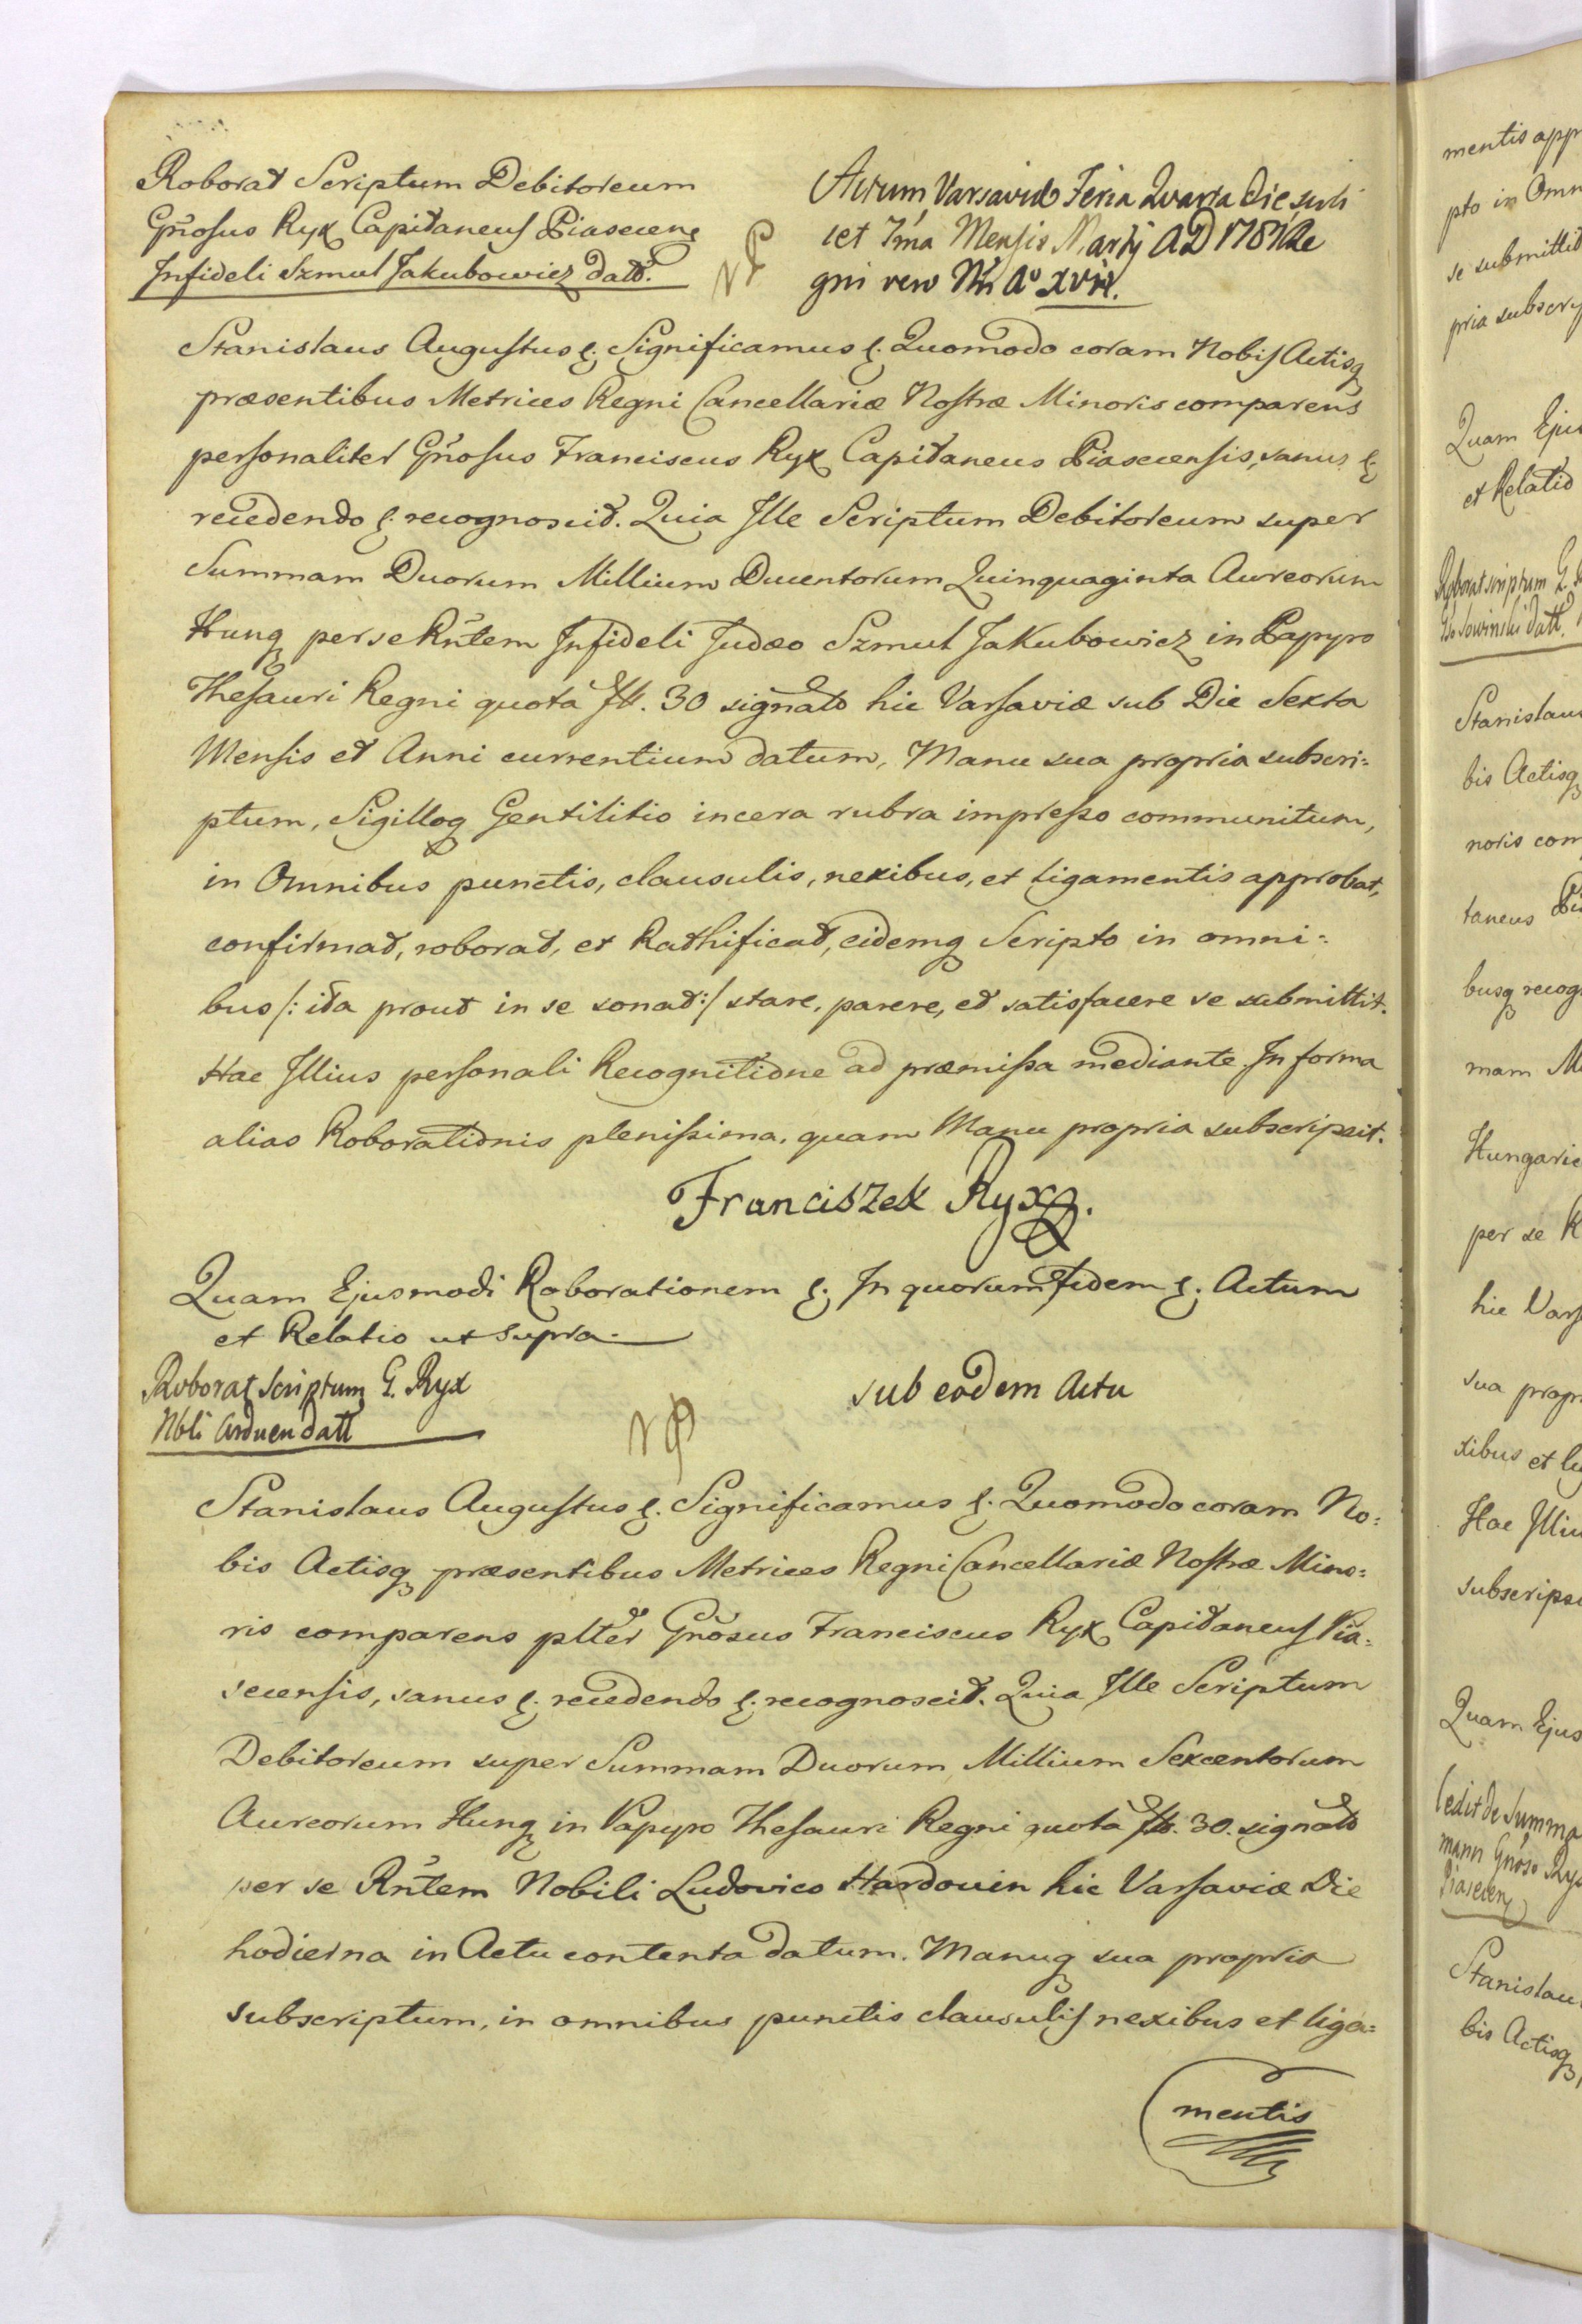 Roborat Scriptum Debitoreum
Gñosus Ryx Capitaneus Piasecens
Infideli Szmul Jakubowicz datt.
Actum Varsaviæ Feria Quarta die scili
cet 7ma Mensis Martij AD 1781 Re
gni vero Nri Aº XVII.
Stanislaus Augustus &. Significamus &. Quomodo coram Nobis Actisq
præsentibus Metrices Regni Cancellariæ Nostræ Minoris comparens
personaliter Gñosus Franciscus Ryx Capitaneus Piasecensis, sanus &
recedendo &. recognoscit. Quia Ille Scriptum Debitoreum super
Summam Duorum Millium Ducentorum Quinquaginta Aureorum
Hung per se Rñtem Infideli Judæo Szmul Jakubowicz in Papyro
Thesauri Regni quota fl. 30 signato hic Varsaviæ sub Die Sexta
Mensis et Anni currentium datum, Manu sua propria subscri=
ptum, Sigilloq Gentilitio in cera rubra impresso communitum,
in Omnibus punctis, clausulis, nexibus, et ligamentis approbat,
confirmat, roborat, et Rathificat, eidemq Scripto in omni=
bus /: ita prout in se sonat :/ stare, parere, et satisfacere se submittit.
Hac Illius personali Recognitione ad præmissa mediante. In forma
alias Roborationis plenissima, quam Manu propria subscripsit.
Franciszek Ryx
Quam Ejusmodi Roborationem &. In quorum fidem &. Actum
et Relatio ut supra.
Roborat Scriptum G. Ryx
Nbli Arduen datt
sub eodem Actu
Stanislaus Augustus &. Significamus &. Quomodo coram No=
bis Actisq præsentibus Metrices Regni Cancellariæ Nostræ Mino=
ris comparens plter Gñosus Franciscus Ryx Capitaneus Pia=
secensis, sanus &. recedendo &. recognoscit. Quia Ille Scriptum
Debitoreum super Summam Duorum Millium Sexcentorum
Aureorum Hung in Papyro Thesauri Regni quota fl. 30. signato
per se Rñtem Nobili Ludovico Hardouin hic Varsaviæ Die
hodierna in Actu contenta datum. Manuq sua propria
subscriptum, in omnibus punctis clausulis nexibus et liga=
mentis
mentis app
pto in Omn
se submittit
pria subscry
Quam Ejus
et Relatio
Roborat scriptum G.
Sowinski datt.
Stanislaus
bis Actisq
noris com
taneus Pi
busq recog
mam M
Hungaric
per se R
hic Vars
sua propr
xibus et li
Hac Illiu
subscripsi
Quam Ejus
Cedit de Summa
mann Gñoso Ryx
Piasecen
Stanislau
bis Actisq